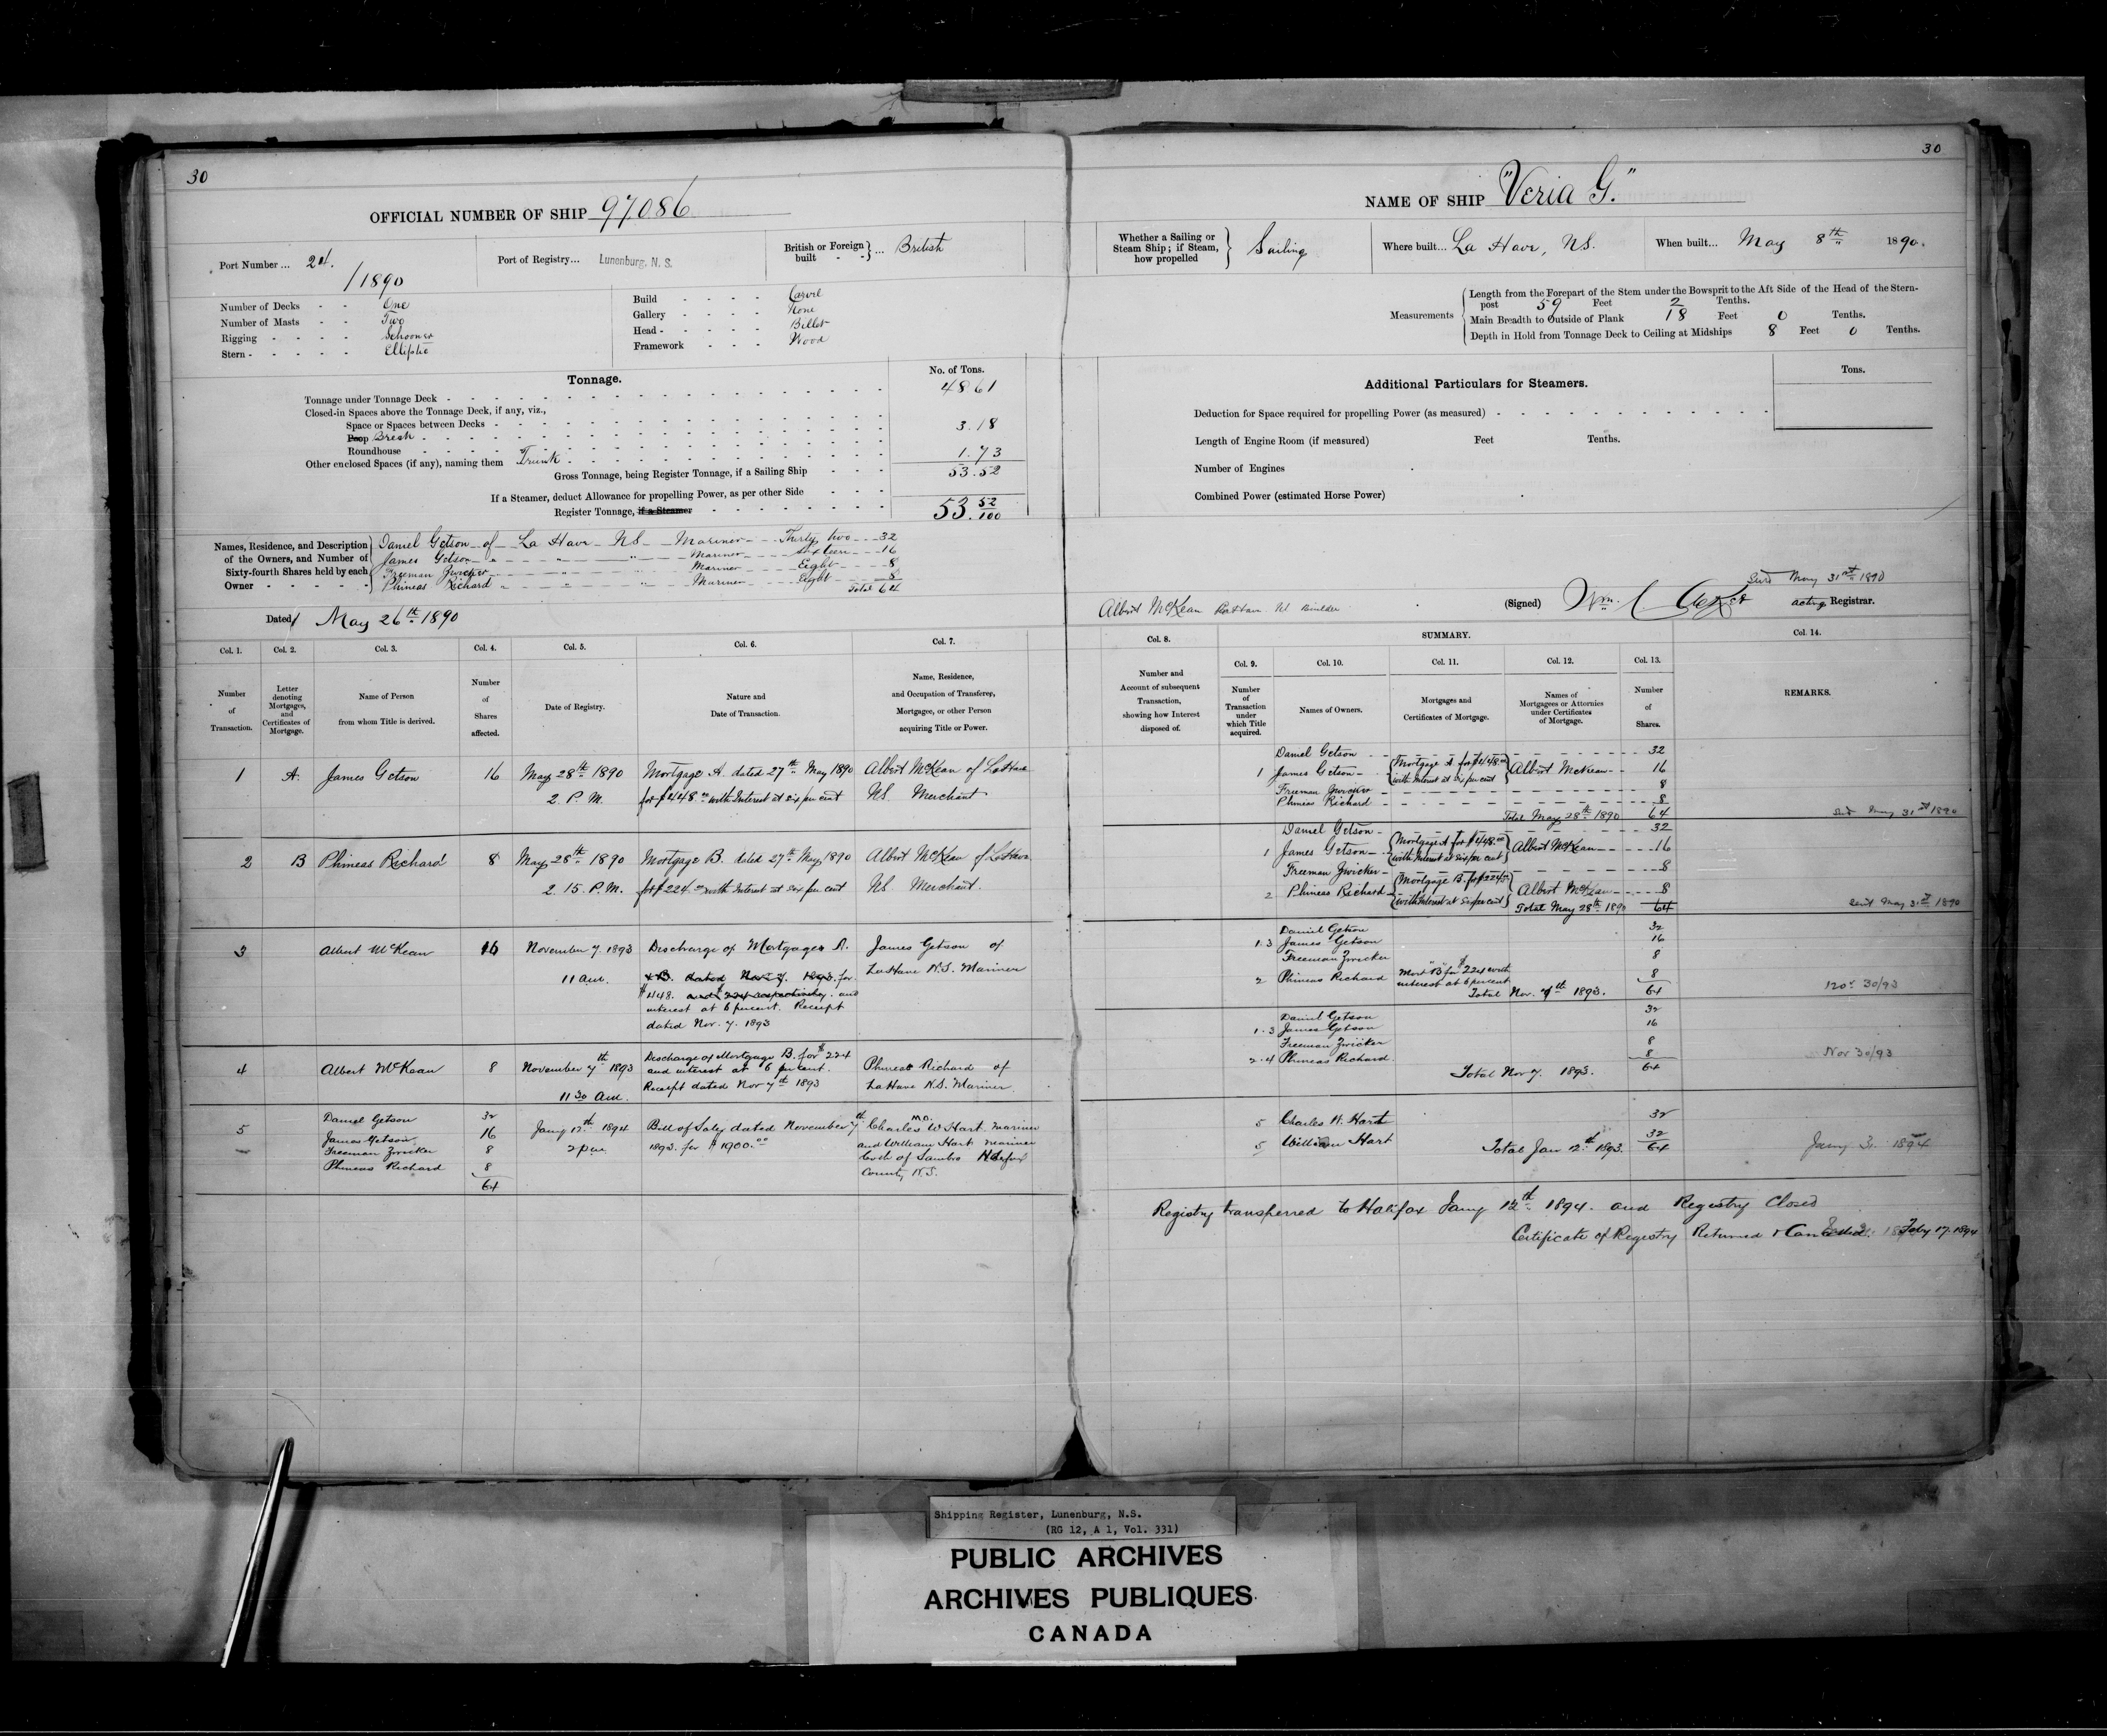 30
OFFICIAL NUMBER OF SHIP 97086
Port Number ... 24.
/1890
Port of Registry... Lunenburg, N. S.
British or Foreign built - - } ... British
Number of Decks - - One
Number of Masts - - Two
Rigging - - - - Schooner
Stern - - - - - Elliptic
Build - - - - Carvel
Gallery - - - - None
Head - - - - - Billet
Framework - - - Wood
Tonnage.
No. of Tons.
Tonnage under Tonnage Deck - 48 61
Closed-in Spaces above the Tonnage Deck, if any, viz.,
Space or Spaces between Decks -
Poop Break - 3.18
Roundhouse
Other enclosed Spaces (if any), naming them Trunk 1.73
Gross Tonnage, being Register Tonnage, if a Sailing Ship - - - 53.52
If a Steamer, deduct Allowance for propelling Power, as per other Side - - -
Register Tonnage, if a Steamer - 53. 52/100
Names, Residence, and Description of the Owners, and Number of Sixty-fourth Shares held by each Owner - - - - -
Daniel Getson of La Have NS Mariner Thirty two 32
James Getson " " " Mariner Sixteen 16
Freeman Zwicker Mariner Eight 8
Phineas Richard " " " Mariner Eight 8
Total 64
Dated May 26th 1890
Col. 1. Col. 2. Col. 3. Col. 4. Col. 5. Col. 6. Col. 7.
Number of Transaction.
Letter denoting Mortgages, and Certificates of Mortgage.
Name of Person from whom Title is derived.
Number of Shares affected.
Date of Registry.
Nature and Date of Transaction.
Name, Residence, and Occupation of Transferee, Mortgagee, or other Person acquiring Title or Power.
1 A. James Getson 16 May 28th 1890 Mortgage A. dated 27th May 1890 Albert McKean of LaHave
2. P. M. for $448.00 with Interest at six per cent NS. Merchant
2 B Phineas Richard 8 May 28th 1890 Mortgage B. dated 27th May 1890 Albert McKean of LaHave
2. 15. P. M. for $224.00 with Interest at six per cent NS. Merchant.
3 Albert McKean 16 November 7. 1893 Discharge of Mortgages A. James Getson of
11 am. & B. dated Nov 7. 1893. for LaHave N.S. Mariner
$448. and $224 respectively. and
interest at 6 percent. Receipt
dated Nov. 7. 1893
4 Albert McKean 8 November 7th 1893 Discharge of Mortgage B. for $224
and interest at 6 percent. Phineas Richard of
11 30 am. Receipt dated Nov 7th 1893 LaHave N.S. Mariner
5 Daniel Getson 32 Jany 12th 1894 Bill of Sale, dated November 7th Charles W Hart mariner
James Getson 16 2 pm 1893. for $1900.00 and William Hart mariner
Freeman Zwicker 8 both of Sambro
Phineas Richard 8 County N.S.
64
30
NAME OF SHIP "Veria G."
Whether a Sailing or Steam Ship; if Steam, how propelled } Sailing
Where built... La Have, NS.
When built... May 8th 1890.
Measurements
Length from the Forepart of the Stem under the Bowsprit to the Aft Side of the Head of the Stern-
post 59 Feet 2 Tenths.
Main Breadth to Outside of Plank 18 Feet 0 Tenths.
Depth in Hold from Tonnage Deck to Ceiling at Midships 8 Feet 0 Tenths.
Additional Particulars for Steamers.
Tons.
Deduction for Space required for propelling Power (as measured) -
Length of Engine Room (if measured) Feet Tenths.
Number of Engines
Combined Power (estimated Horse Power)
May 31st 1890
Albert McKean NS Builder
(Signed) Wm. acting Registrar.
Col. 8. SUMMARY. Col. 14.
Col. 9. Col. 10. Col. 11. Col. 12. Col. 13.
Number and Account of subsequent Transaction, showing how Interest disposed of.
Number of Transaction under which Title acquired.
Names of Owners.
Mortgages and Certificates of Mortgage.
Names of Mortgagees or Attornies under Certificates of Mortgage.
Number of Shares.
REMARKS.
Daniel Getson 32
1 James Getson Mortgage A for $448.00 with Interest at six per cent Albert McKean 16
Freeman Zwicker 8
Phineas Richard 8
Total May 28th 1890 64 May 31st 1890
Daniel Getson 32
1 James Getson Mortgage A for $448.00 with Interest at six per cent Albert McKean 16
Freeman Zwicker 8
2 Phineas Richard Mortgage B. for $224.00 with Interest at six per cent Albert McKean 8
Total May 28th 1890 64 Sent May 31st 1890
Daniel Getson 32
1.3 James Getson 16
Freeman Zwicker 8
2 Phineas Richard Mort "B" for $224 with interest at 6 percent 8
Total Nov. 7th 1893. 64 30/93
Daniel Getson 32
1.3 James Getson 16
Freeman Zwicker 8
2.4 Phineas Richard 8
Total Nov 7. 1893. 64 Nov 30/93
5 Charles W. Hart 32
5 William Hart 32
Total Jan 12th 1893. 64 Jany 3. 1894
Registry transferred to Halifax Jany 12th 1894. and Registry Closed
Certificate of Registry Returned & Cancelled. Feby 17. 1894
Shipping Register, Lunenburg, N.S.
(RG 12, A 1, Vol. 331)
PUBLIC ARCHIVES
ARCHIVES PUBLIQUES
CANADA